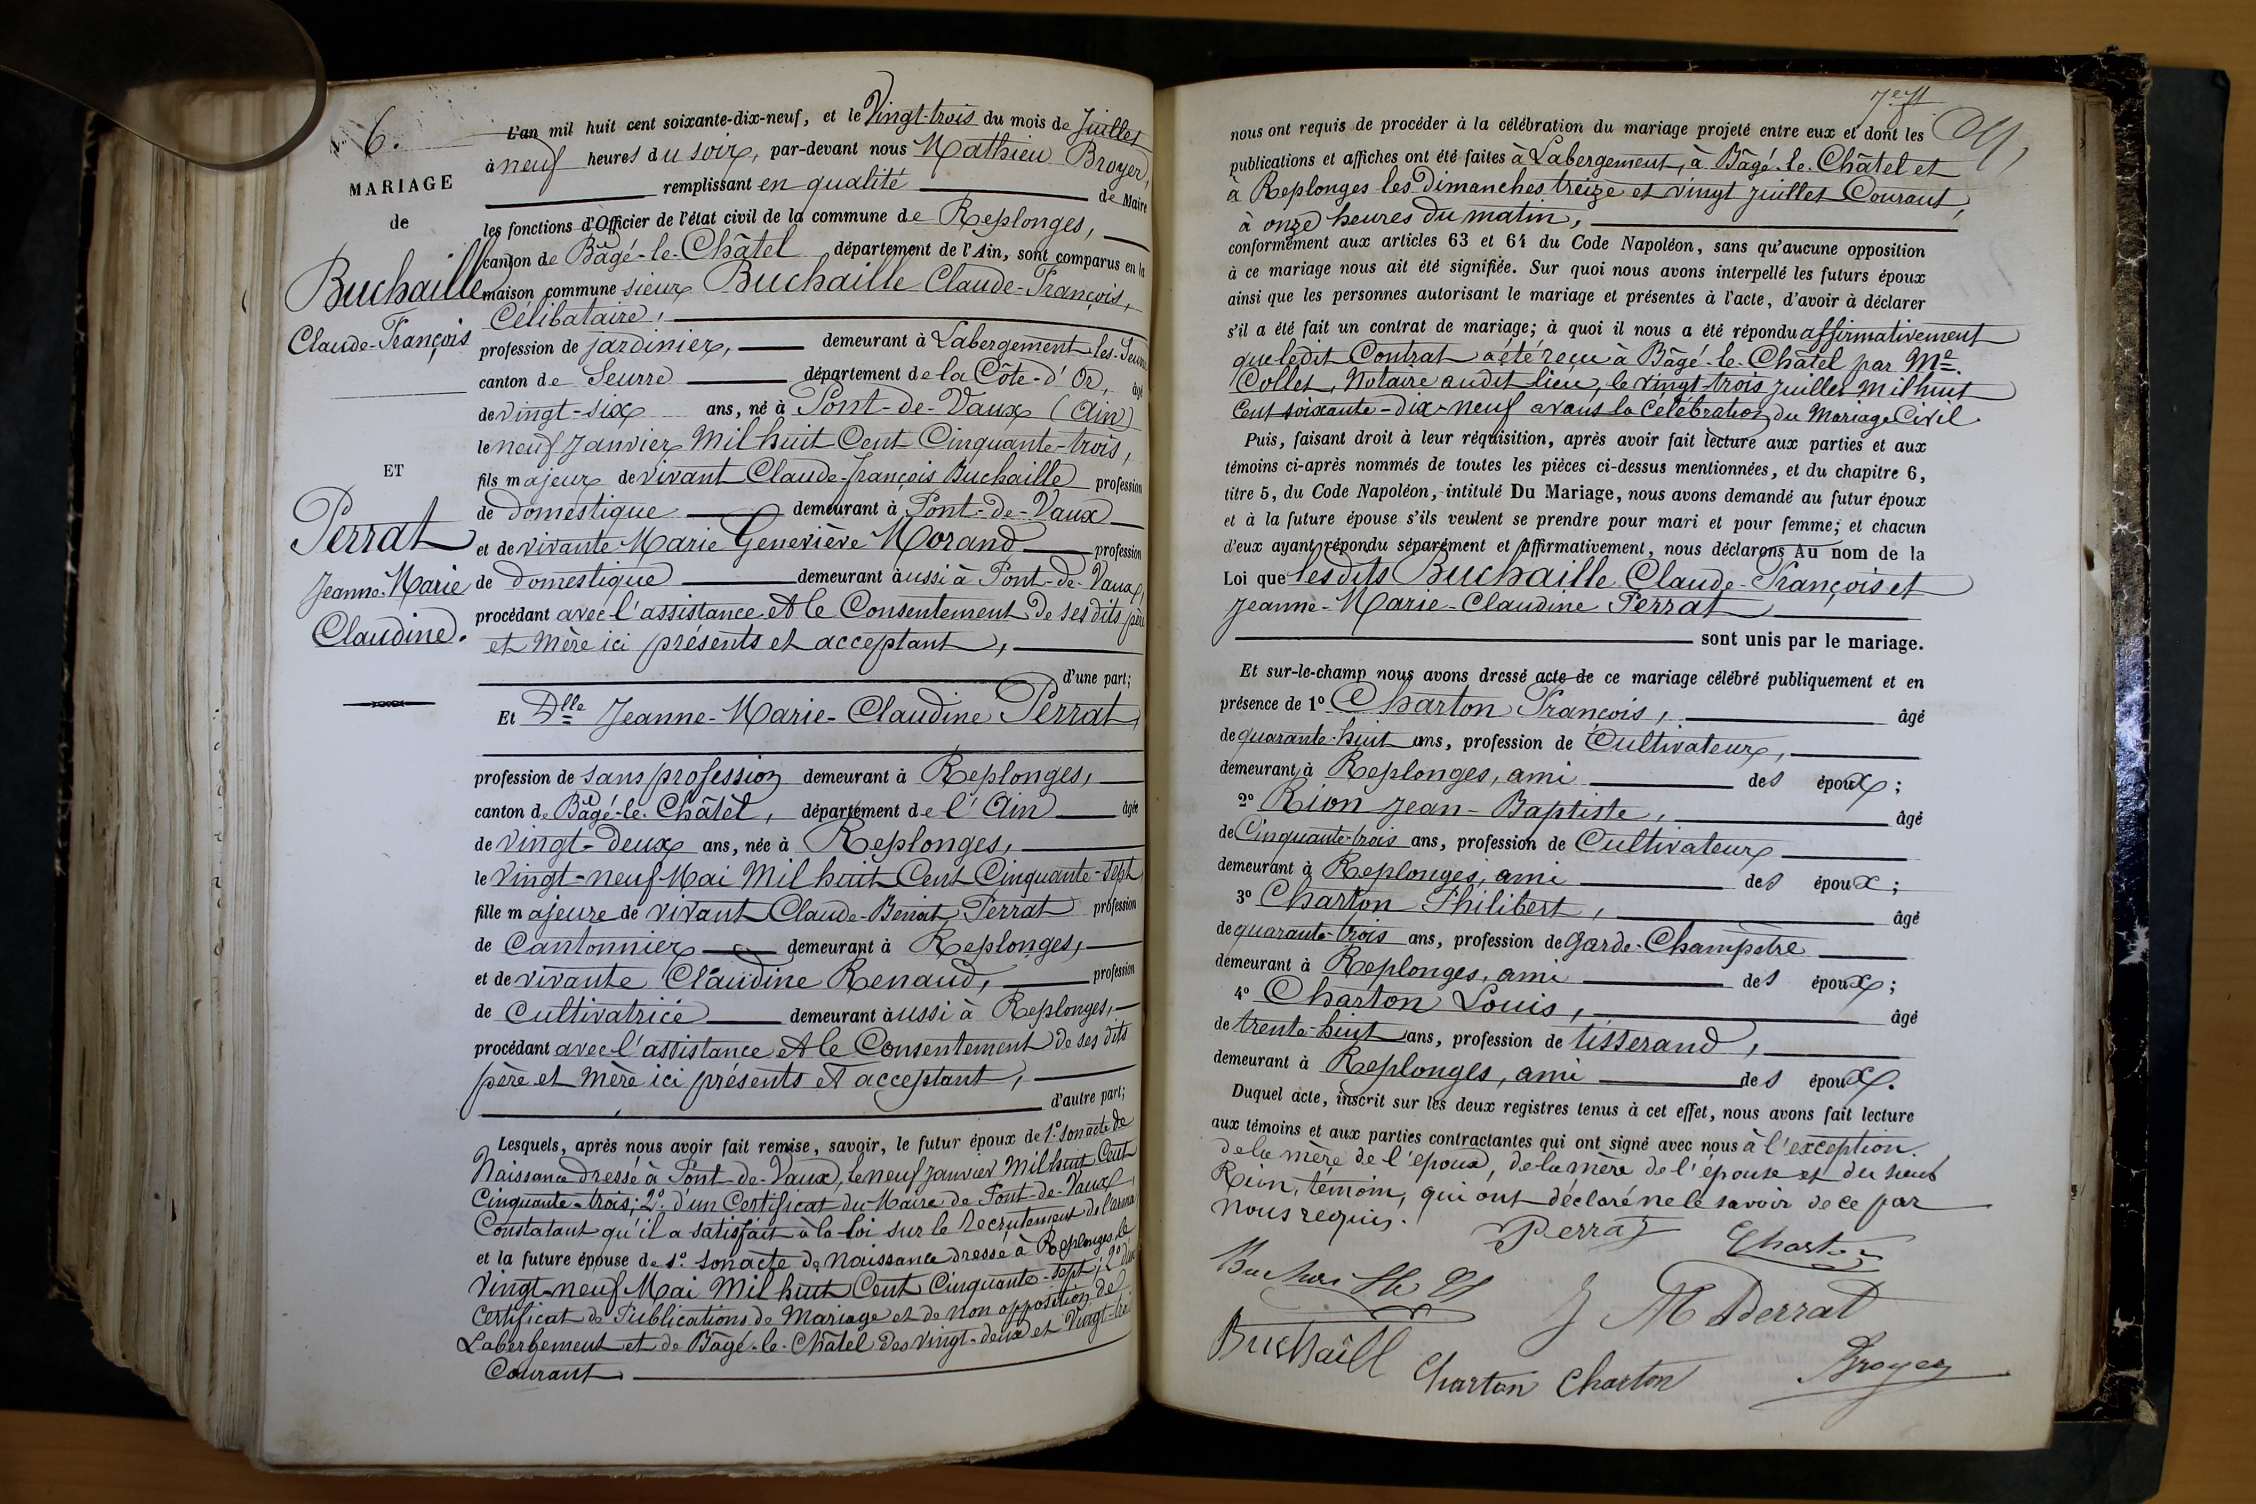 N° 6.
MARIAGE
de
Buchaille
Claude-François
ET
Perrat
Jeanne-Marie
Claudine.
L'an mil huit cent soixante-dix-neuf, et le Vingt-trois du mois de Juillet
à neuf heures du soir, par-devant nous Mathieu Broyer,
remplissant en qualité de Maire
les fonctions d'Officier de l'état civil de la commune de Replonges,
canton de Bâgé-le-Châtel département de l'Ain, sont comparus en la
maison commune sieur Buchaille Claude-François,
Célibataire,
profession de jardinier, demeurant à Labergement-les-Seurre
canton de Seurre département de la Côte-d'Or, âgé
de vingt-six ans, né à Pont-de-Vaux (Ain)
le neuf Janvier Mil huit Cent Cinquante-trois,
fils majeur de vivant Claude-François Buchaille profession
de domestique demeurant à Pont-de-Vaux
et de vivante Marie Geneviève Morand profession
de domestique demeurant aussi à Pont-de-Vaux,
procédant avec l'assistance et le Consentement de ses dits père
et mère ici présents et acceptant,
d'une part;
Et Dlle Jeanne-Marie-Claudine Perrat,
profession de sans profession demeurant à Replonges,
canton de Bâgé-le-Châtel, département de l'Ain âgée
de vingt-deux ans, née à Replonges,
le vingt-neuf Mai Mil huit Cent Cinquante-sept
fille majeure de vivant Claude-Benoit Perrat profession
de Cantonnier demeurant à Replonges,
et de vivante Claudine Renaud, profession
de Cultivatrice demeurant aussi à Replonges,
procédant avec l'assistance et le Consentement de ses dits
père et mère ici présents et acceptant,
d'autre part;
Lesquels, après nous avoir fait remise, savoir, le futur époux de 1° son acte de
Naissance dressé à Pont-de-Vaux, le neuf janvier Mil huit Cent
Cinquante-trois; 2° d'un Certificat du Maire de Pont-de-Vaux,
Constatant qu'il a satisfait à la loi sur le Recrutement de l'armée
et la future épouse de 1° son acte de Naissance dressé à Replonges le
vingt-neuf Mai Mil huit Cent Cinquante-sept; 2° d'un
Certificat de Publications de Mariage et de non opposition de
Labergement et de Bâgé-le-Châtel des vingt-deux et vingt-trois
Courant.
nous ont requis de procéder à la célébration du mariage projeté entre eux et dont les
publications et affiches ont été faites à Labergement, à Bâgé-le-Châtel et
à Replonges les Dimanches treize et vingt juillet Courant,
à onze heures du matin,
conformément aux articles 63 et 64 du Code Napoléon, sans qu'aucune opposition
à ce mariage nous ait été signifiée. Sur quoi nous avons interpellé les futurs époux
ainsi que les personnes autorisant le mariage et présentes à l'acte, d'avoir à déclarer
s'il a été fait un contrat de mariage; à quoi il nous a été répondu affirmativement
que ledit Contrat a été reçu à Bâgé-le-Châtel par Me
Collet, Notaire audit lieu, le vingt-trois juillet Mil huit
Cent soixante-dix-neuf avant la Célébration du Mariage Civil.
Puis, faisant droit à leur réquisition, après avoir fait lecture aux parties et aux
témoins ci-après nommés de toutes les pièces ci-dessus mentionnées, et du chapitre 6,
titre 5, du Code Napoléon, intitulé Du Mariage, nous avons demandé au futur époux
et à la future épouse s'ils veulent se prendre pour mari et pour femme; et chacun
d'eux ayant répondu séparément et affirmativement, nous déclarons Au nom de la
Loi que lesdits Buchaille Claude-François et
Jeanne-Marie-Claudine Perrat
sont unis par le mariage.
Et sur-le-champ nous avons dressé acte de ce mariage célébré publiquement et en
présence de 1° Charton François, âgé
de quarante-huit ans, profession de Cultivateur,
demeurant à Replonges, ami des époux;
2° Rion Jean-Baptiste, âgé
de Cinquante-trois ans, profession de Cultivateur
demeurant à Replonges, ami des époux;
3° Charton Philibert, âgé
de quarante-trois ans, profession de Garde-Champêtre
demeurant à Replonges, ami des époux;
4° Charton Louis, âgé
de trente-huit ans, profession de tisserand,
demeurant à Replonges, ami des époux.
Duquel acte, inscrit sur les deux registres tenus à cet effet, nous avons fait lecture
aux témoins et aux parties contractantes qui ont signé avec nous à l'exception
de la mère de l'époux, de la mère de l'épouse et du sieur
Rion, témoin, qui ont déclaré ne le savoir de ce par
nous requis.
Perrat Charton
J M Perrat
Buchaill Charton Charton Broyer